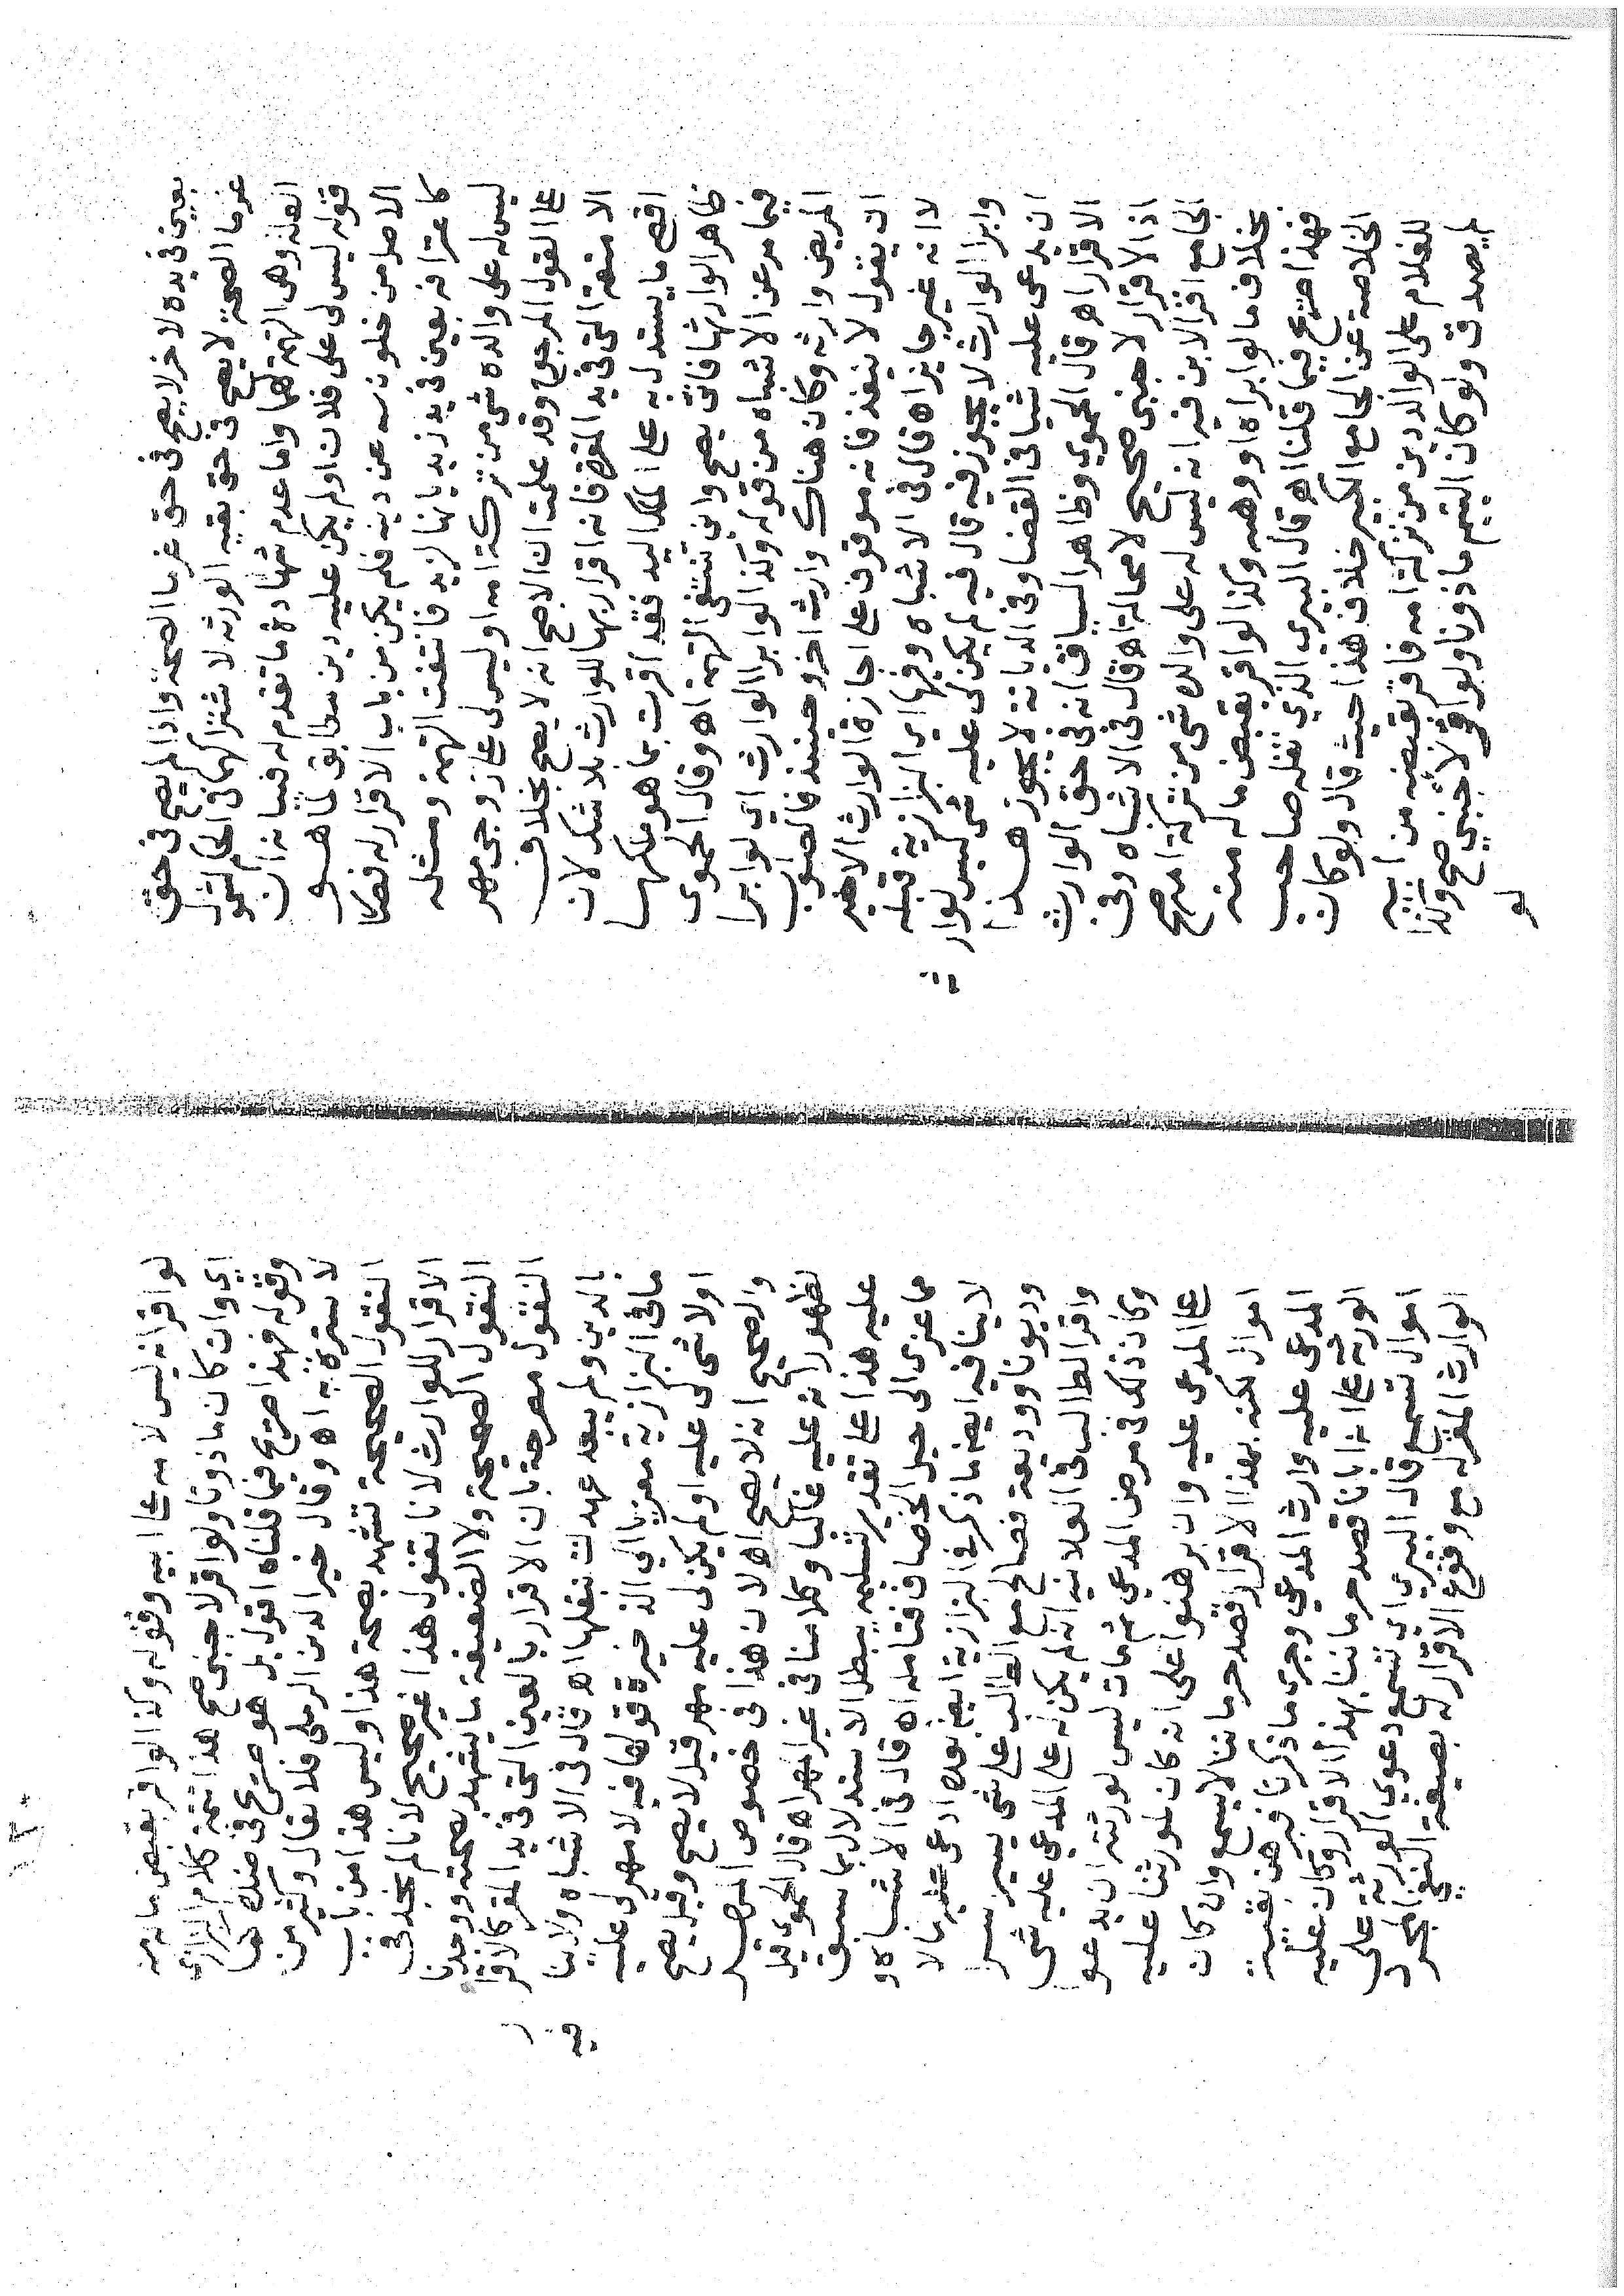 بعين في يده لاخر لا يصح في حق غرما الصحة واذا لم يصح في حق
غرما الصحة لا يصح في حق بقيه الورثه لاشتراكهما في الحكم لشمول
العلة وهي التهمة لهما واما عدم شهادة ما تقدم له فبيانه ان
قوله ليس لي على فلان او لم يكن عليه دين مطابق لما هو
الاصل من خلو ذمته عن دينه فلم يكن من باب الاقرار له فصار
كاعترافه بعين في يد زيد بانها لزيد فانتفت التهمة ومثله
ليس له على والده شي من تركة امه او ليس لي على زوجي مهر
على القول المرجوح وقد علمت ان الاصح انه لا يصح بخلاف
الامتعة التي في يد المقر فانه اقرار بها للوارث بلا شك لان
اقصى ما يستدل به على الملك اليد فقد اقرت بما هو ملكها
ظاهرا لوارثها فانى يصح وانى تنتفي التهمة اه وقال الحموي
فيما مر عن الاشباه من قوله وكذا لو ابرا الوارث اي لو ابرا
المريض وارثه وكان هناك وارث اخر وحينئذ فالصواب
ان يقول لا ينفذ فانه موقوف على اجازة الوارث الاخر
لا انه غير جايز اه قال في الاشباه وفيها اي البزازية قبله
وابرا الوارث لا يجوز فيه قال فيه لم يكن لي عليه شي ليس لوارثه
ان يدعى عليه شيا في القضا وفي الديانة لا يجوز هذا
الاقرار اه قال الحموي وظاهر السياق انه في حق الوارث
اذ الاقرار لاجنبي صحيح لا محالة اه قال في الاشباه وفي
الجامع اقر الابن فيه انه ليس له على والده شي من تركة امه صح
بخلاف ما لو ابراه او وهبه وكذا لو اقر بقبض ماله منه
فهذا صريح فيما قلنا اه قال البيري الذي نقله صاحب
الخلاصة عن الجامع الكبير خلاف هذا حيث قال ولو كان
للغلام على الوالد دين من تركة امه فاقر بقبضه من ابيه
لم يصدق ولو كان اليتيم ماذونا ولو اقر لاجنبي صح وكذا
لو
لو اقر انه ليس لامه على ابيه وقوله وكذا لو اقر بقبض ماله منه
اي وان كان ماذونا ولو اقر لاجنبي صح هذا تتمة كلام البزازي
وقوله فهذا صريح فيما قلناه اقول بل هو صريح في ضده لما
لا سترة به اه وقال خير الدين الرملي فلا يقال وكثير من
النقول الصحيحة تشهد بصحة هذا وليس هذا من باب
الاقرار للوارث لانا نقول هذا غير صحيح لانا لم نجد في
النقول الصحيحة ولا الضعيفة ما يشهد بصحته ووجدنا
النقول مصرحة بان الاقرار بالعين التي في يد المقر كالاقرار
بالدين ولم يبعد عهدك بنقلها اه قال في الاشباه ولا ينافيه
ما في البزازية معزيا الي الذخيرة قولها فيه لا مهر لي عليه
او لا شي لي عليه او لم يكن لي عليه مهر قيل لا يصح وقيل يصح
والصحيح انه لا يصح اه لان هذا في خصوص المهر
لظهور انه عليه غالبا وكلامنا في غير المهر اه قال الحموي قيل
عليه هذا على تقدير تسليمه يبطل الاستدلال بما سبق
مما عزى الى حيل الخصاف فتامله اه قال في الاشباه و
لا ينافيه ايضا ما ذكره في البزازية ايضا بعده ادعى عليه مالا
وديونا ووديعة فصالح مع الطالب على شي يسير سرا
واقر الطالب في العلانيه انه لم يكن له على المدعي عليه شي
وكان ذلك في مرض المدعي ثم مات ليس لورثته ان يدعوا
على المدعى عليه وان برهنوا على انه كان لمورثنا عليه
اموال لكنه بهذا الاقرار قصد حرماننا لا يسمع وان كان
المدعى عليه وارث المدعي وجرى ما ذكرنا فبرهن بقية
الورثه على ان ابانا قصد حرماننا بهذا الاقرار وكان عليه
اموال تسمع قال البيري اي تسمع دعوي الورثة على
الوارث المقر له مع وقوع الاقرار له بصيغة النفي المجرد